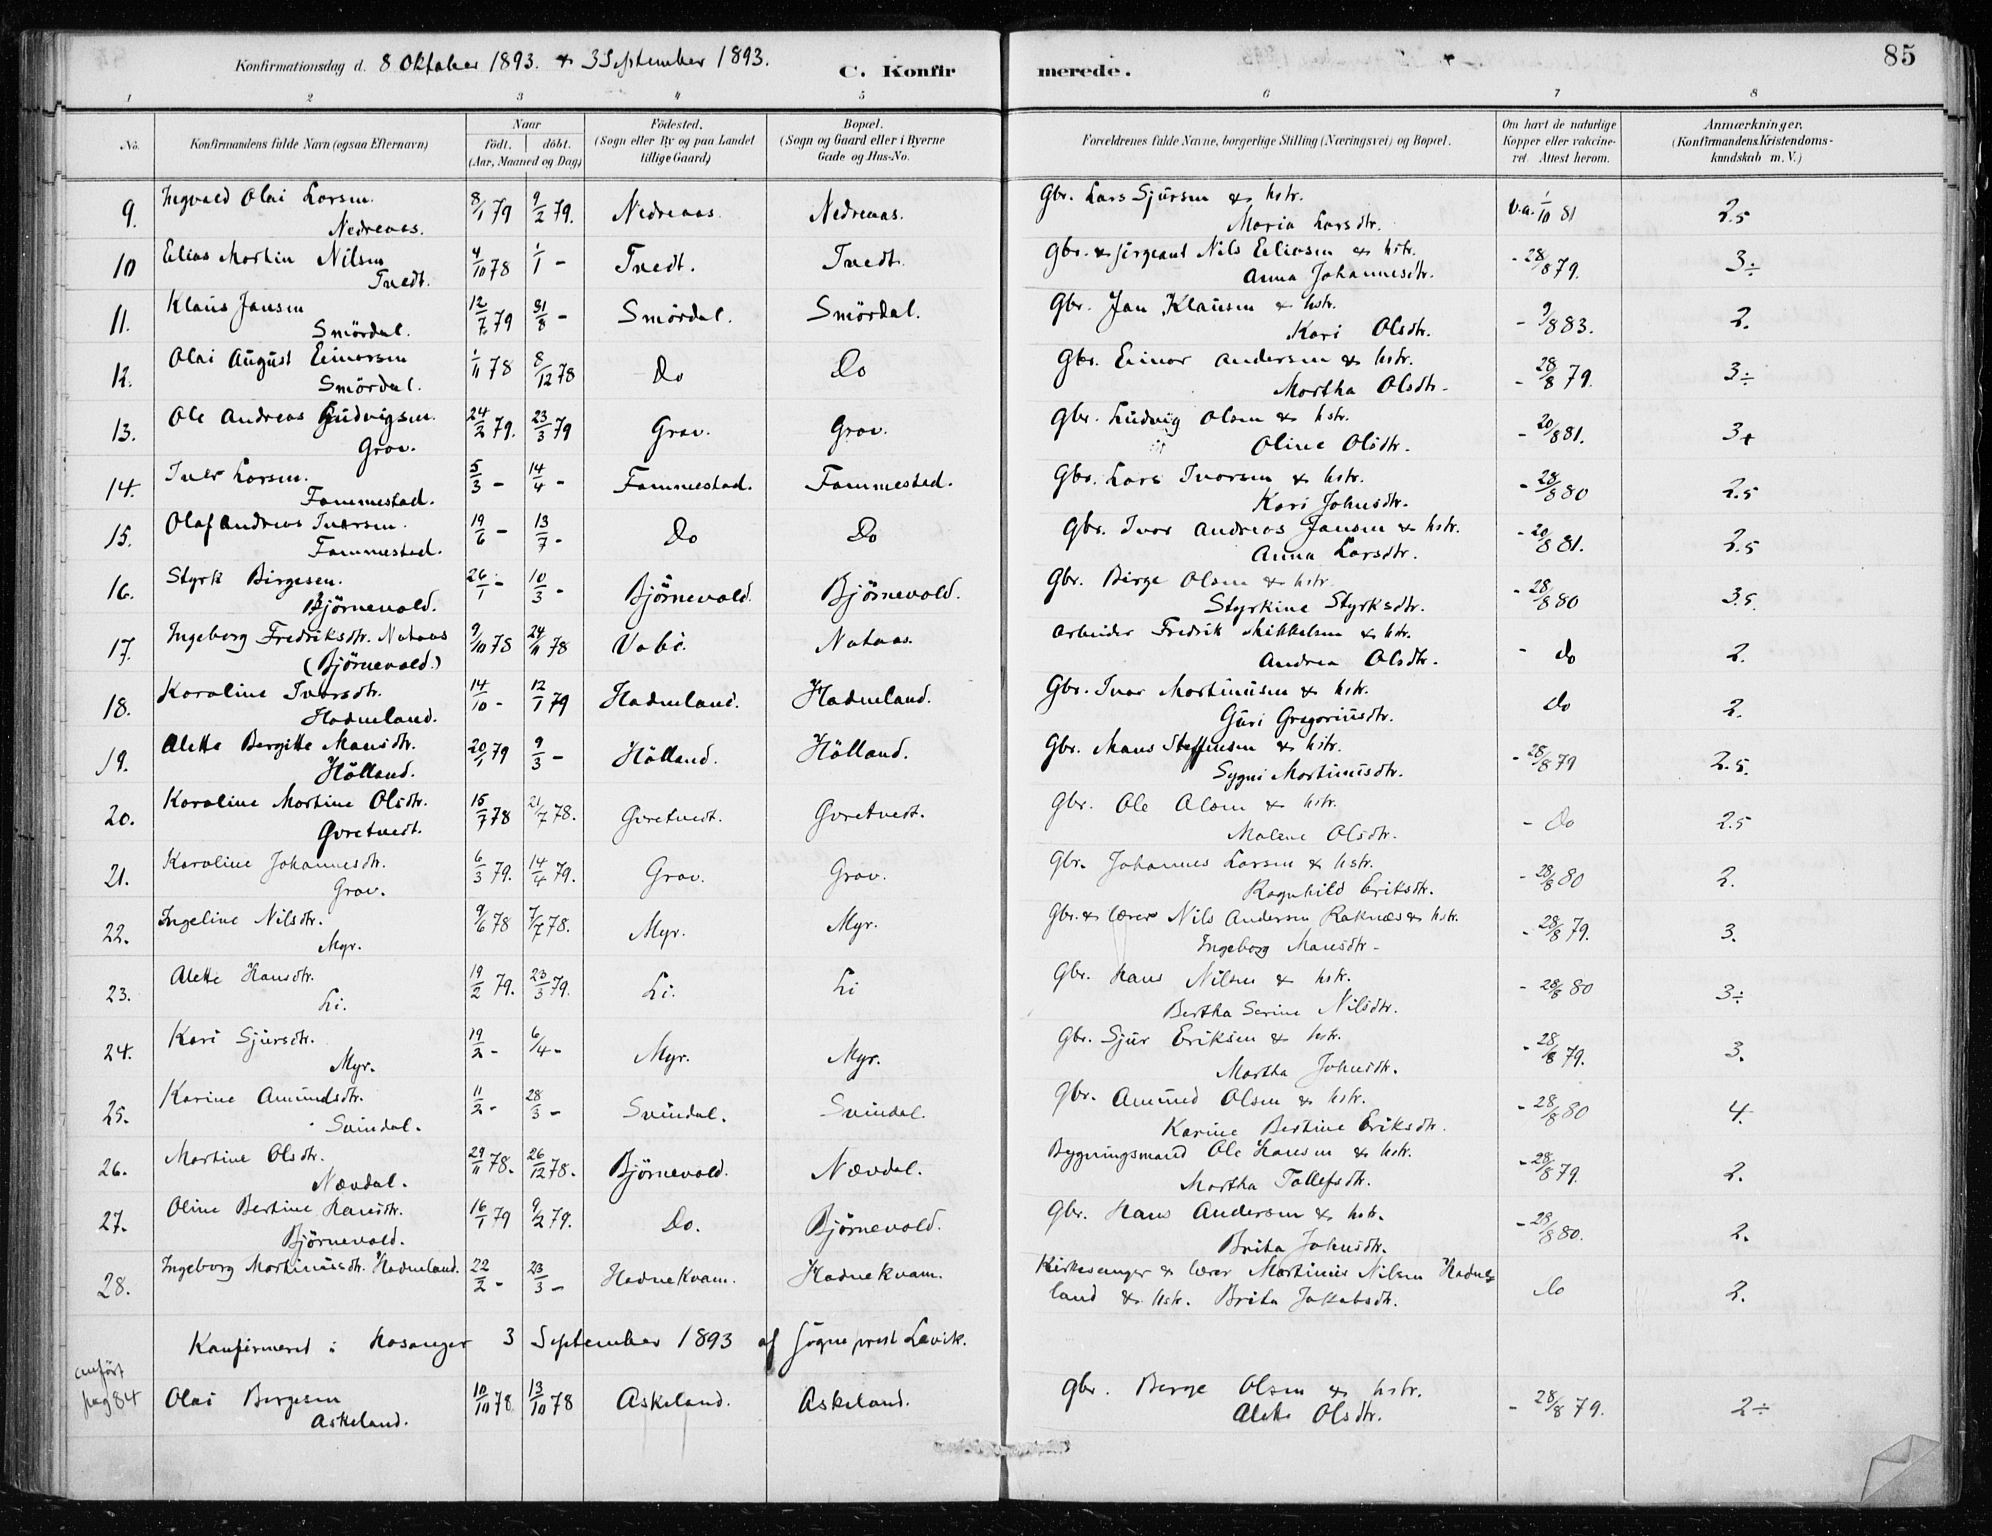 Konfirmationsdag d. 8 Oktober 1893. & 3 September 1893.
C. Konfirmerede.
85
1 2 3 4 5 6 7 8
No. | Konfirmandens fulde Navn (ogsaa Efternavn) | Naar födt. döbt. (Aar, Maaned og Dag) | Födested. (Sogn eller By og paa Landet tillige Gaard) | Bopæl. (Sogn og Gaard eller i Byerne Gade og Hus-No. | Forældrenes fulde Navne, borgerlige Stilling (Næringsvei) og Bopæl. | Om havt de naturlige Kopper eller vakcineret. Attest herom. | Anmærkninger. (Konfirmandens Kristendomskundskab m. V.)
9. Ingvald Olai Larsen Nedreaas. 8/1 79 9/2 79. Nedreaas. Nedreaas. Gbr. Lars Sjursen & hstr. Maria Larsdtr. v.a. 1/10 81 2.5
10 Elias Martin Nilsen Tvedt. 4/10 78 1/1 - Tvedt. Tvedt. Gbr. & sergeant Nils Eliasen & hstr. Anna Johannesdtr. - 28/8 79. 3÷
11. Klaus Jansen Smördal. 12/7 79 31/8 - Smördal. Smördal. Gbr. Jan Klausen & hstr. Kari Olsdtr. - 9/8 83. 2.
12. Olai August Einarsen Smördal. 1/11 78 8/12 78 Do Do Gbr. Einar Andersen & hstr. Martha Olsdtr. - 28/8 79. 3÷
13. Ole Andreas Ludvigsen. Grav. 24/2 79. 23/3 79 Grav. Grav. Gbr. Ludvig Olsen & hstr. Oline Olsdtr. - 20/8 81. 3+
14. Iver Larsen. Fammestad. 5/3 - 14/4 - Fammestad. Fammestad. Gbr. Lars Ivarsen & hstr. Kari Johnsdtr. - 28/8 80 2.5
15. Olaf Andreas Ivarsen. Fammestad. 19/6 - 13/7 - Do Do Gbr. Ivar Andreas Jansen & hstr. Anna Larsdtr. - 20/8 81. 2.5
16. Styrk Birgesen. Björnevold. 26/1 - 10/3 - Björnevold. Björnevold. Gbr. Birge Olsen & hstr. Styrkine Styrksdtr. - 28/8 80 3.5.
17. Ingeborg Fredriksdtr. Nataas (Björnevold.) 9/10 78 24/11 78 Nataas. Arbeider Fredrik Mikkelsen & hstr. Andrea Olsdtr. - do 2.
18. Karoline Ivarsdtr. Hadneland. 14/10 - 12/1 79 Hadneland. Hadneland. Gbr. Ivar Martinusen & hstr. Guri Gregoriusdtr. do 2.
19. Alette Bergitte Mansdtr. Hölland. 20/1 79 9/3 - Hölland. Hölland. Gbr. Mans Steffensen & hstr. Sygni Martinusdtr. - 28/8 79 2.5.
20. Karoline Martine Olsdtr. Gvretvedt. 15/7 78 21/7 78. Gvretvedt. Gvretvedt. Gbr. Ole Olsen & hstr. Malene Olsdtr. - Do 2.5
21. Karoline Johannesdtr. Grav. 6/3 79. 14/4 79. Grav. Grav. Gbr. Johannes Larsen & hstr. Ragnhild Eriksdtr. - 28/8 80 2.
22. Ingeline Nilsdtr. Myr. 9/6 78 7/7 78. Myr. Myr. Gbr. & lærer Nils Andersen Raknæs & hstr. Ingeborg Mansdtr - - 28/8 79. 3.
23. Alette Hansdtr. Li. 19/2 79. 23/3 79. Li. Li Gbr. Hans Nilsen & hstr. Bertha Serine Nilsdtr. - 28/8 80 3÷
24. Kari Sjursdtr. Myr. 19/2 - 6/4 - Myr. Myr. Gbr. Sjur Eriksen & hstr. Martha Johnsdtr. - 28/8 79. 3.
25. Karine Amundsdtr. Svindal. 11/2 - 28/3 - Svindal. Svindal. Gbr. Amund Olsen & hstr. Karine Bertine Eriksdtr. - 28/8 80 4.
26. Martine Olsdtr. Nævdal. 29/11 78. 26/12 78. Björnevold. Nævdal. Bygningsmand Ole Hansen & hstr. Martha Tollefsdtr. - 28/8 79. 2.
27. Oline Bertine Hansdtr. Björnevold. 16/1 79 9/2 79. Do. Björnevold. Gbr. Hans Andersen & hstr. Brita Johnsdtr. - 28/8 80. 2.
28. Ingeborg Martinusdtr. Hadneland. 22/2 - 23/3 - Hadnekvam. Hadnekvam. Kirkesanger & lærer Martinus Nilsen Hadneland & hstr. Brita Jakabsdtr. do 2.
Konfirmeret i Hosanger 3 September 1893 af sogneprest Lavik.
anfört pag 84 Olai Bergesen Askeland. 10/10 78 13/10 78 Askeland. Askeland. Gbr. Berge Olsen & hstr. Alette Olsdtr. - 28/8 79. 2÷